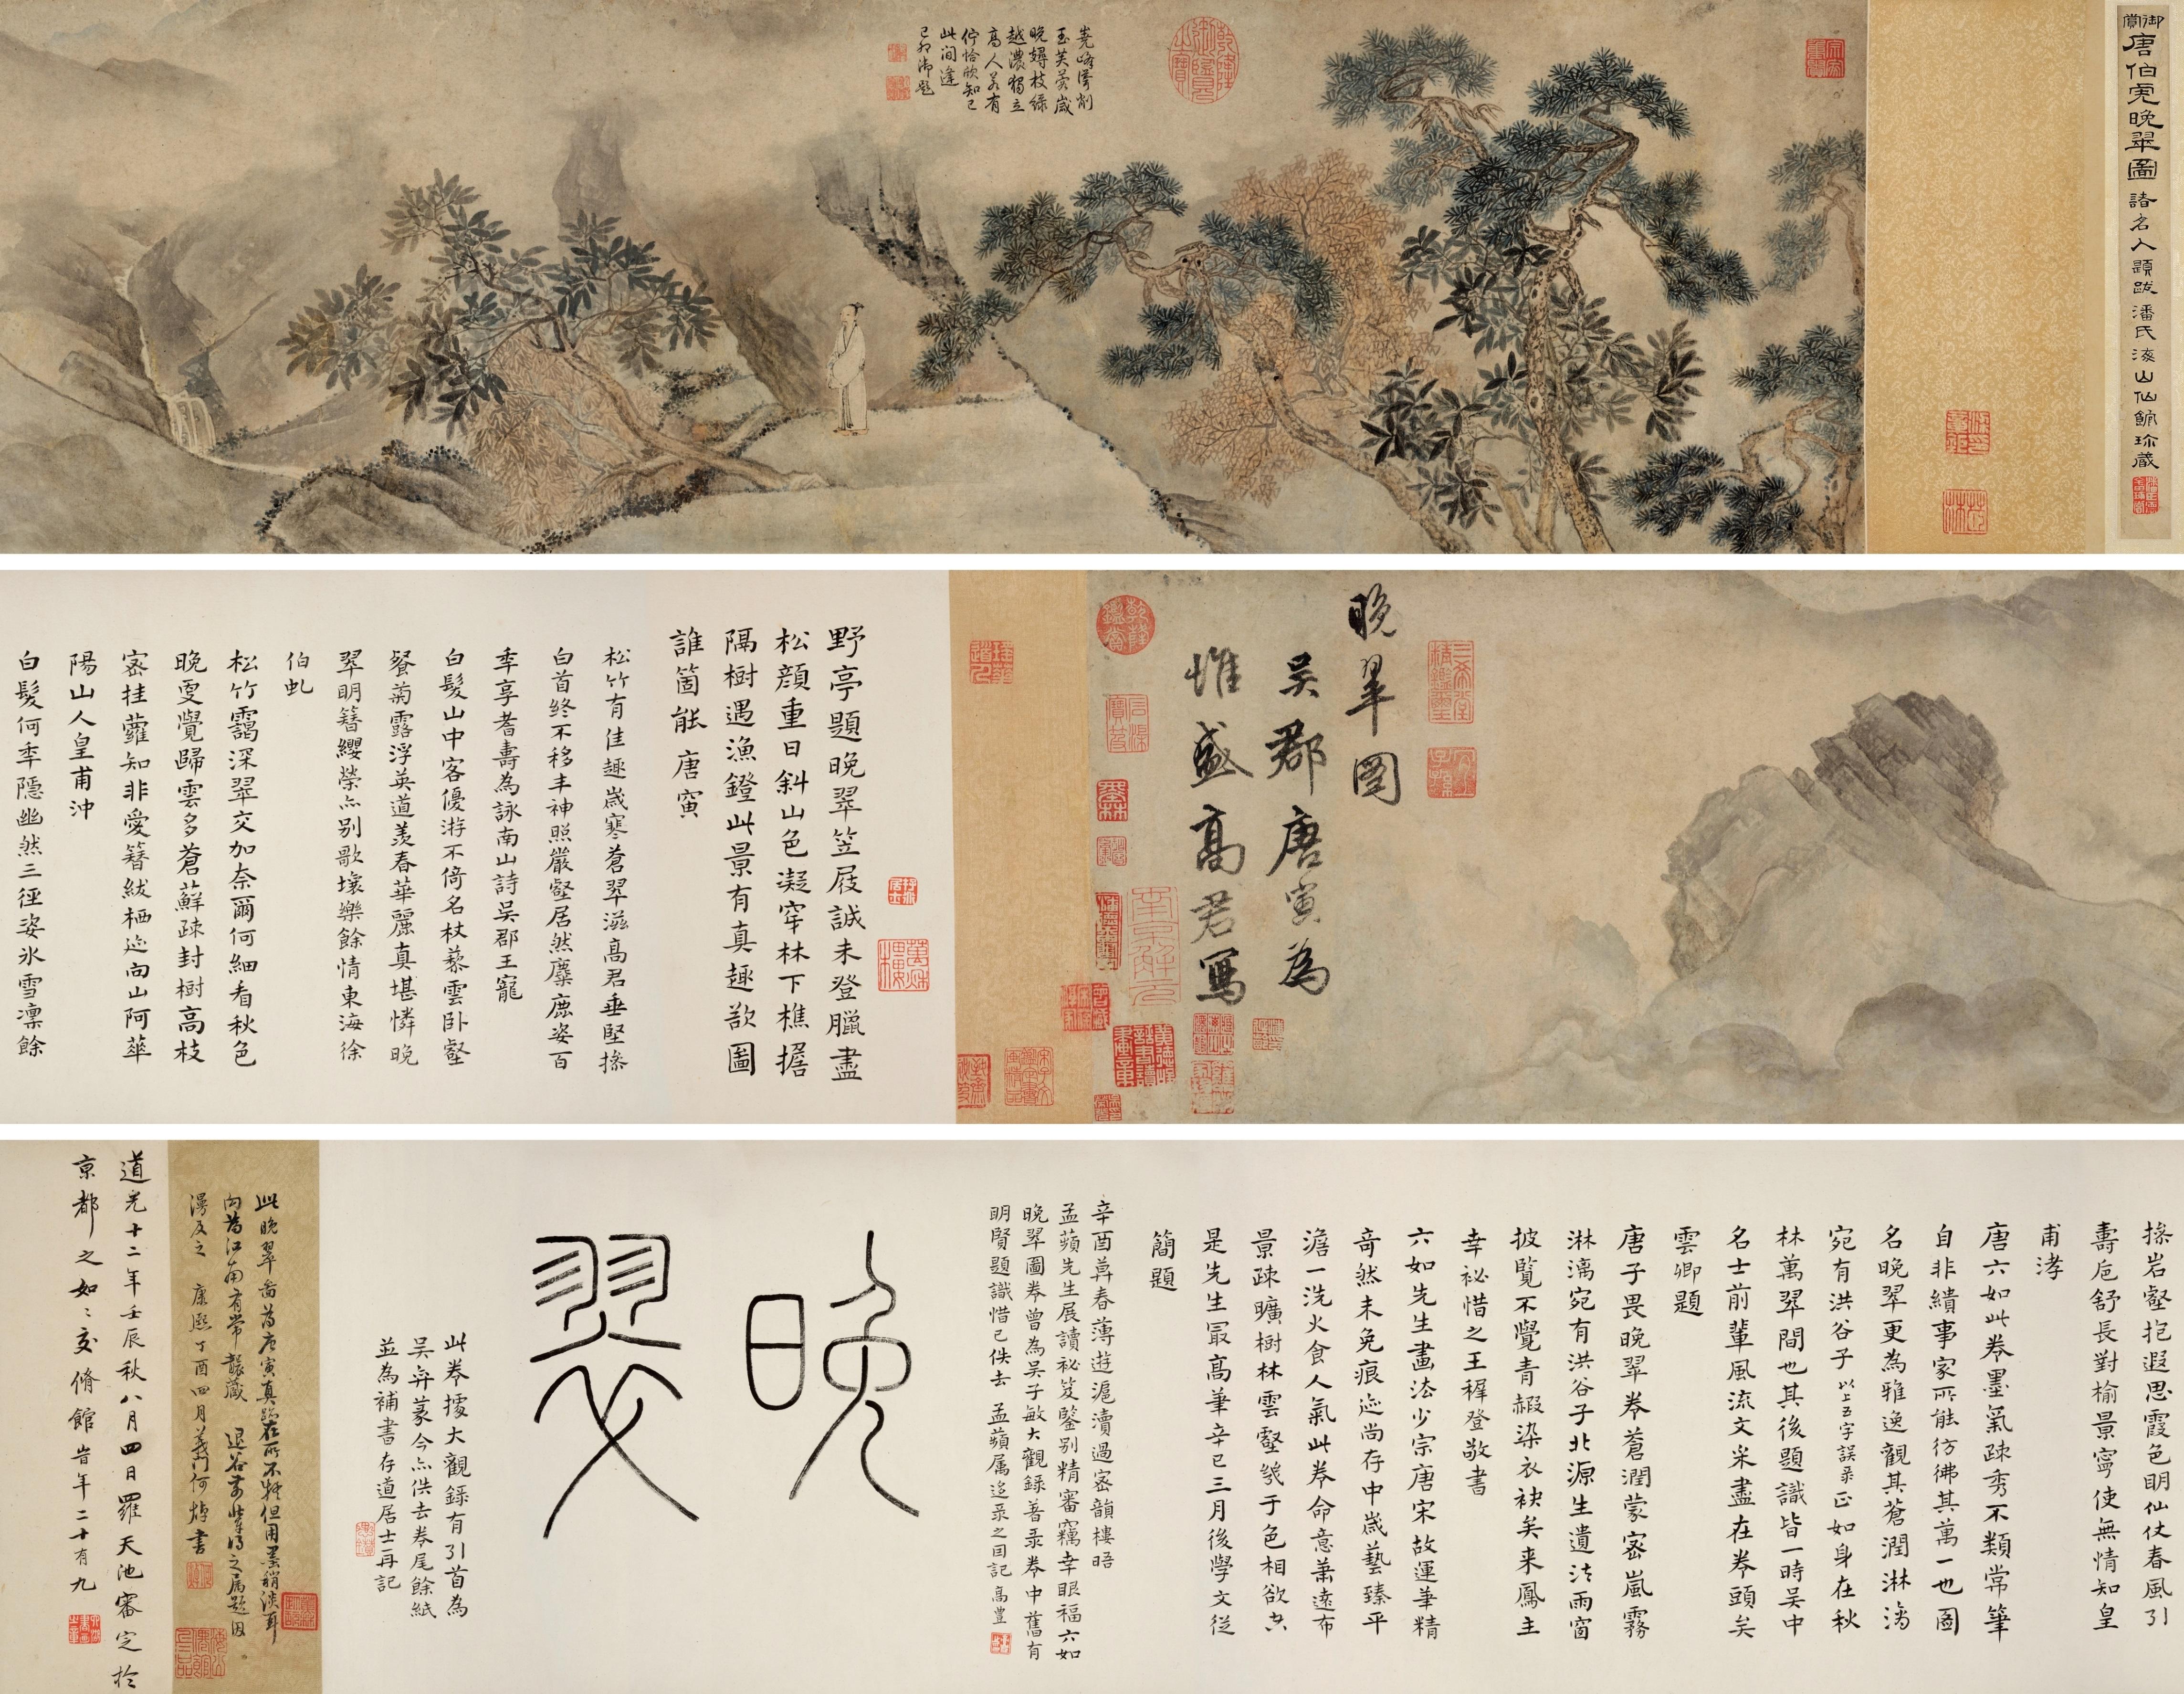 御賞
唐伯虎晚翠圖 諸名人題跋潘氏海山仙館珍藏
堯峰濘削
玉芙蓉歲
晚蟳枝綠
越濃獨立
高人若有
佇恰欣知己
此間逢
己卯御題
晚翠圖
吳郡唐寅為
惟盛高君寫
野亭題晚翠笠屐誠未登臘盡
松顏重日斜山色凝穿林下樵擔
隔樹遇漁鐙此景有真趣欲圖
誰箇能 唐寅
松竹有佳趣歲寒蒼翠滋高君垂堅操
白首終不移丰神照巖壑居然麋鹿姿百
年享耆壽為詠南山詩吳郡王寵
白髮山中客優游不倚名杖藜雲臥壑
餐菊露浮英道羨春華麗真堪憐晚
翠明簪纓榮亦別歌壤樂餘情東海徐
伯虬
松竹靄深翠交加奈爾何細看秋色
晚雯覺歸雲多蒼蘚疎封樹高枝
密挂蘿知非愛簪紱栖迹向山阿華
陽山人皇甫沖
白髮何年隱幽然三徑姿氷雪凜餘
操岩壑抱遐思霞色明仙仗春風引
壽卮舒長對榆景寧使無情知皇
甫涍
唐六如此卷墨氣疎秀不類常筆
自非繢事家所能彷彿其萬一也圖
名晚翠更為雅逸觀其蒼潤淋漓
宛有洪谷子以上五字誤录正如身在秋
林萬翠間也其後題識皆一時吳中
名士前輩風流文采盡在卷頭矣
雲卿題
唐子畏晚翠卷蒼潤蒙密嵐霧
淋漓宛有洪谷子北源生遺法雨窗
披覽不覺青緅染衣袂矣来鳳主
幸祕惜之王穉登敬書
六如先生畫法少宗唐宋故運筆精
奇然未免痕迹尚存中歲藝臻平
澹一洗火食人氣此卷命意蕭遠布
景疎曠樹林雲壑幾于色相欲空
是先生最高筆辛巳三月後學文從
簡題
辛酉莫春薄遊滬瀆過密韻樓晤
孟蘋先生展讀祕笈鑒別精審竊幸眼福六如
晚翠圖卷曾為吳子敏大觀錄著录卷中舊有
明賢題識惜已佚去 孟蘋属迻录之因記 高豊
晚翠
此卷據大觀錄有引首為
吳弈篆今亦佚去卷尾餘紙
並為補書存道居士再記
此晚翠圖為唐寅真跡在所不疑但用墨稍淡耳
向為江南有常韞藏 退谷以此得之属題因
漫及之 康熙丁酉四月義門何焯書
道光十二年壬辰秋八月四日羅天池審定於
京都之如如交脩館旹年二十有九